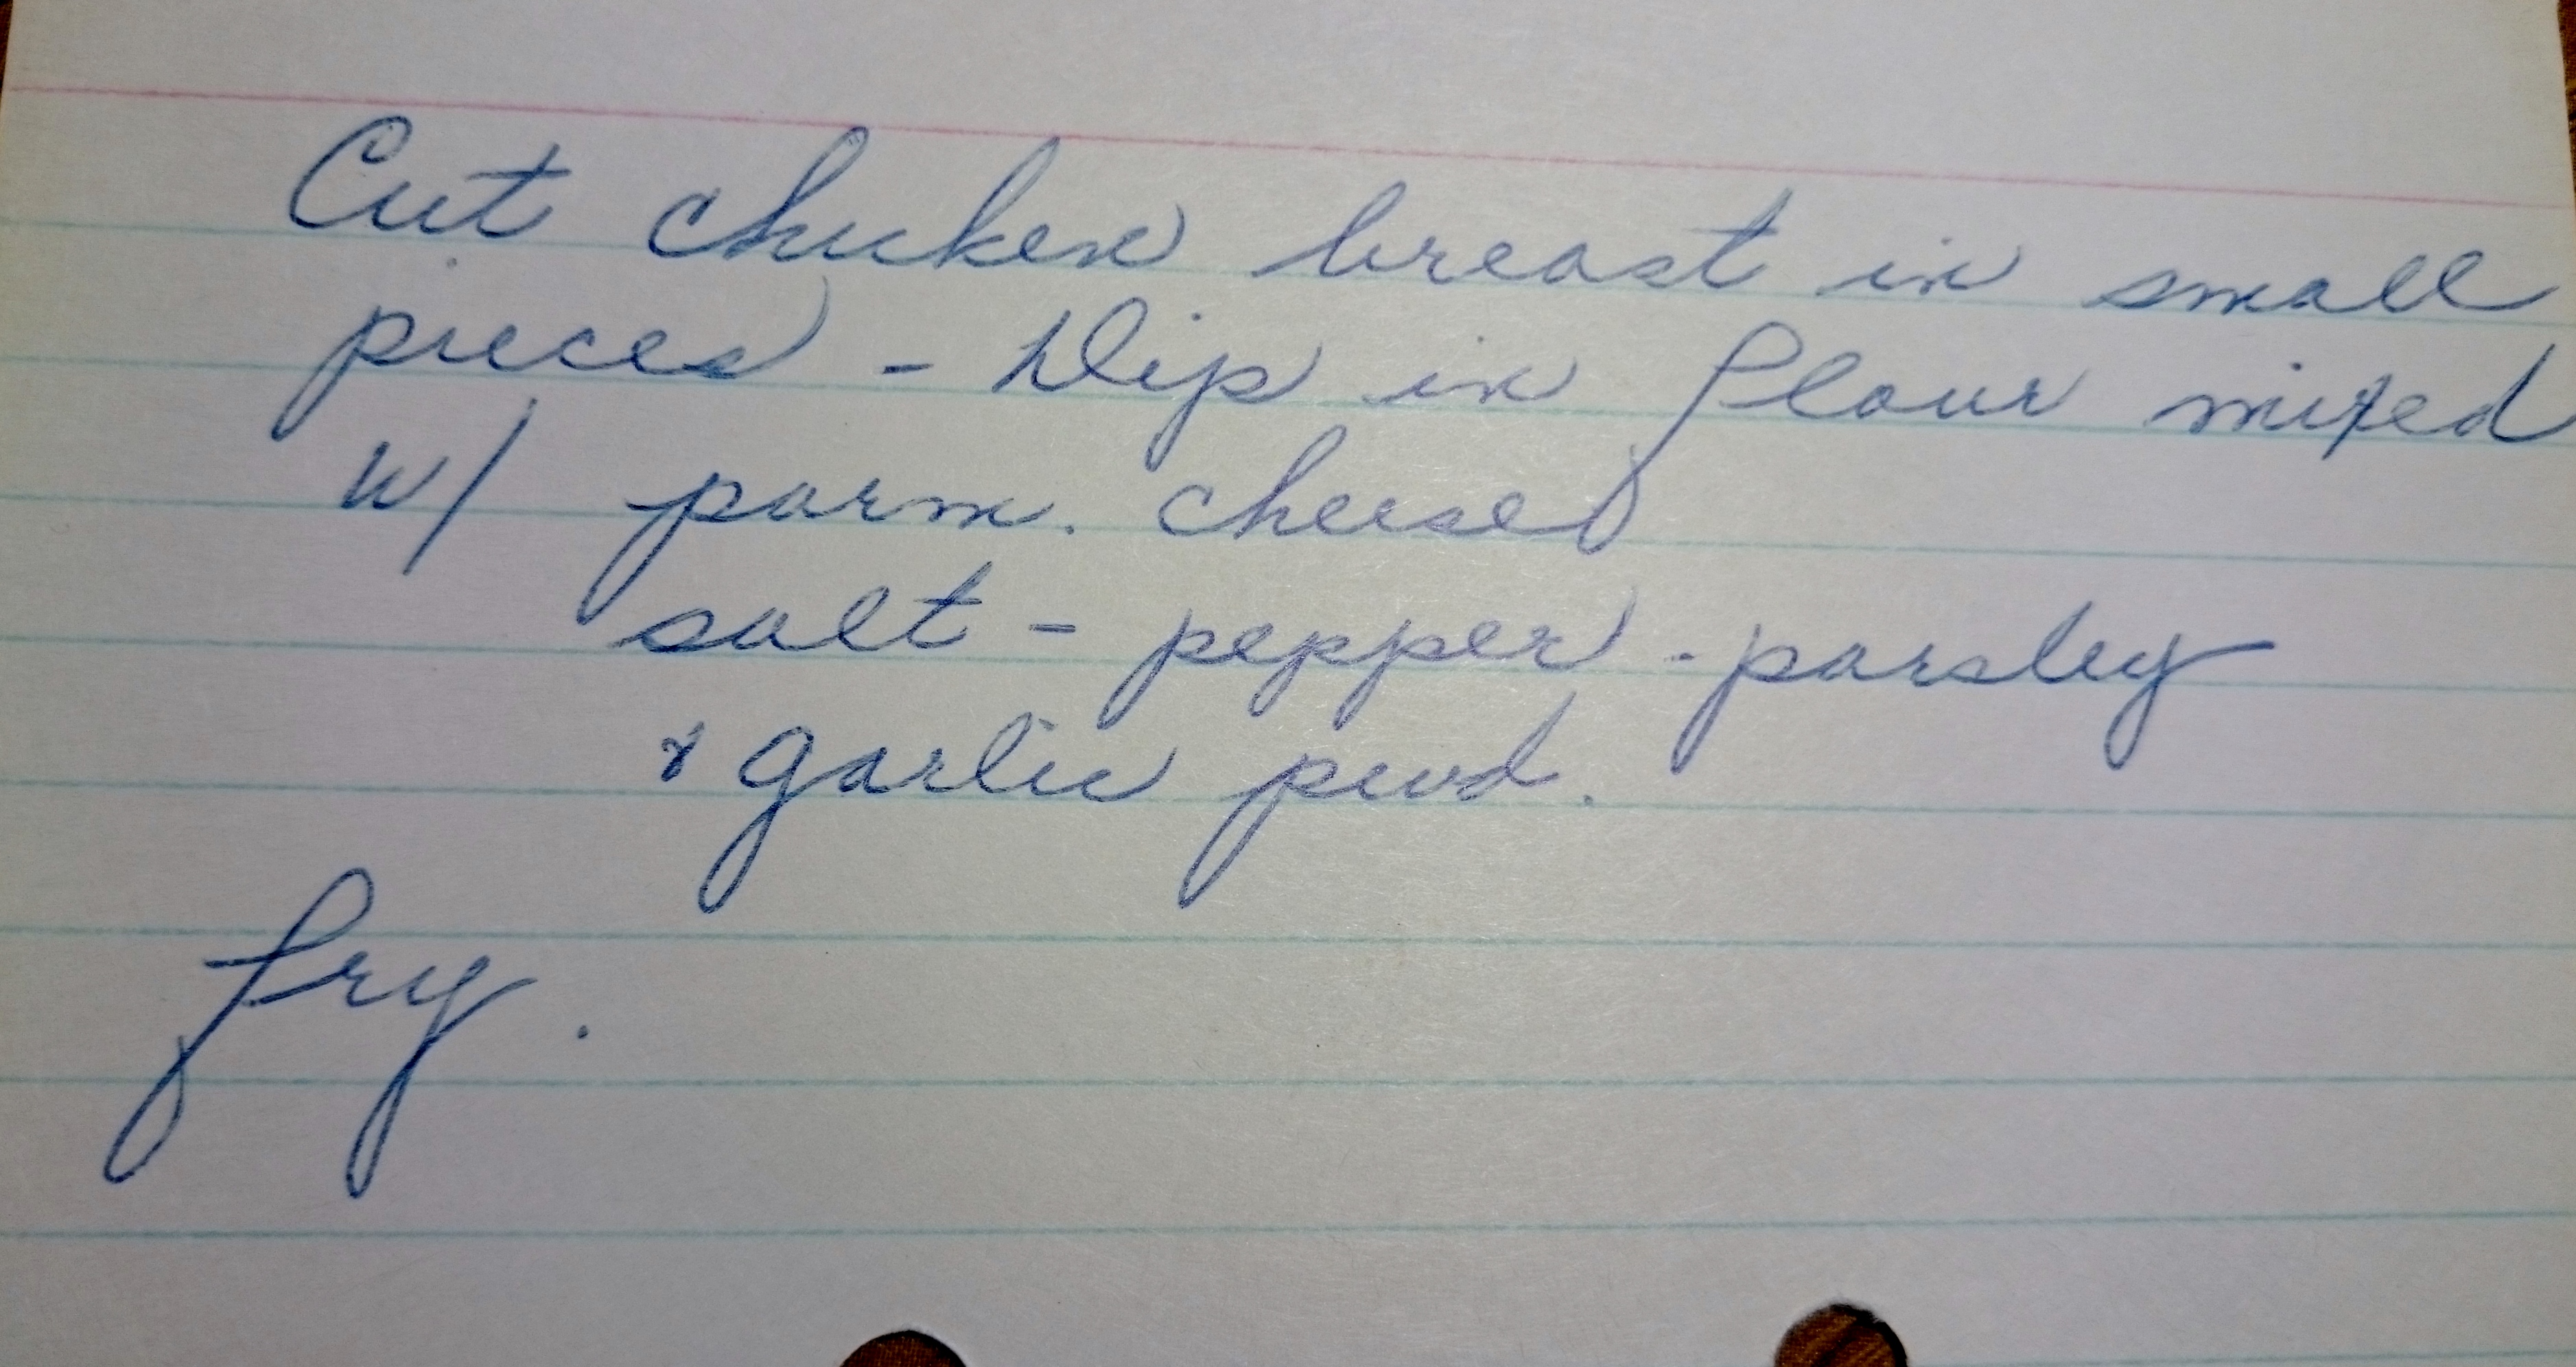 Cut chicken breast in small
pieces - Dip in flour mixed
w/ parm. cheese
salt - pepper - parsley
& garlic pwd.
fry.